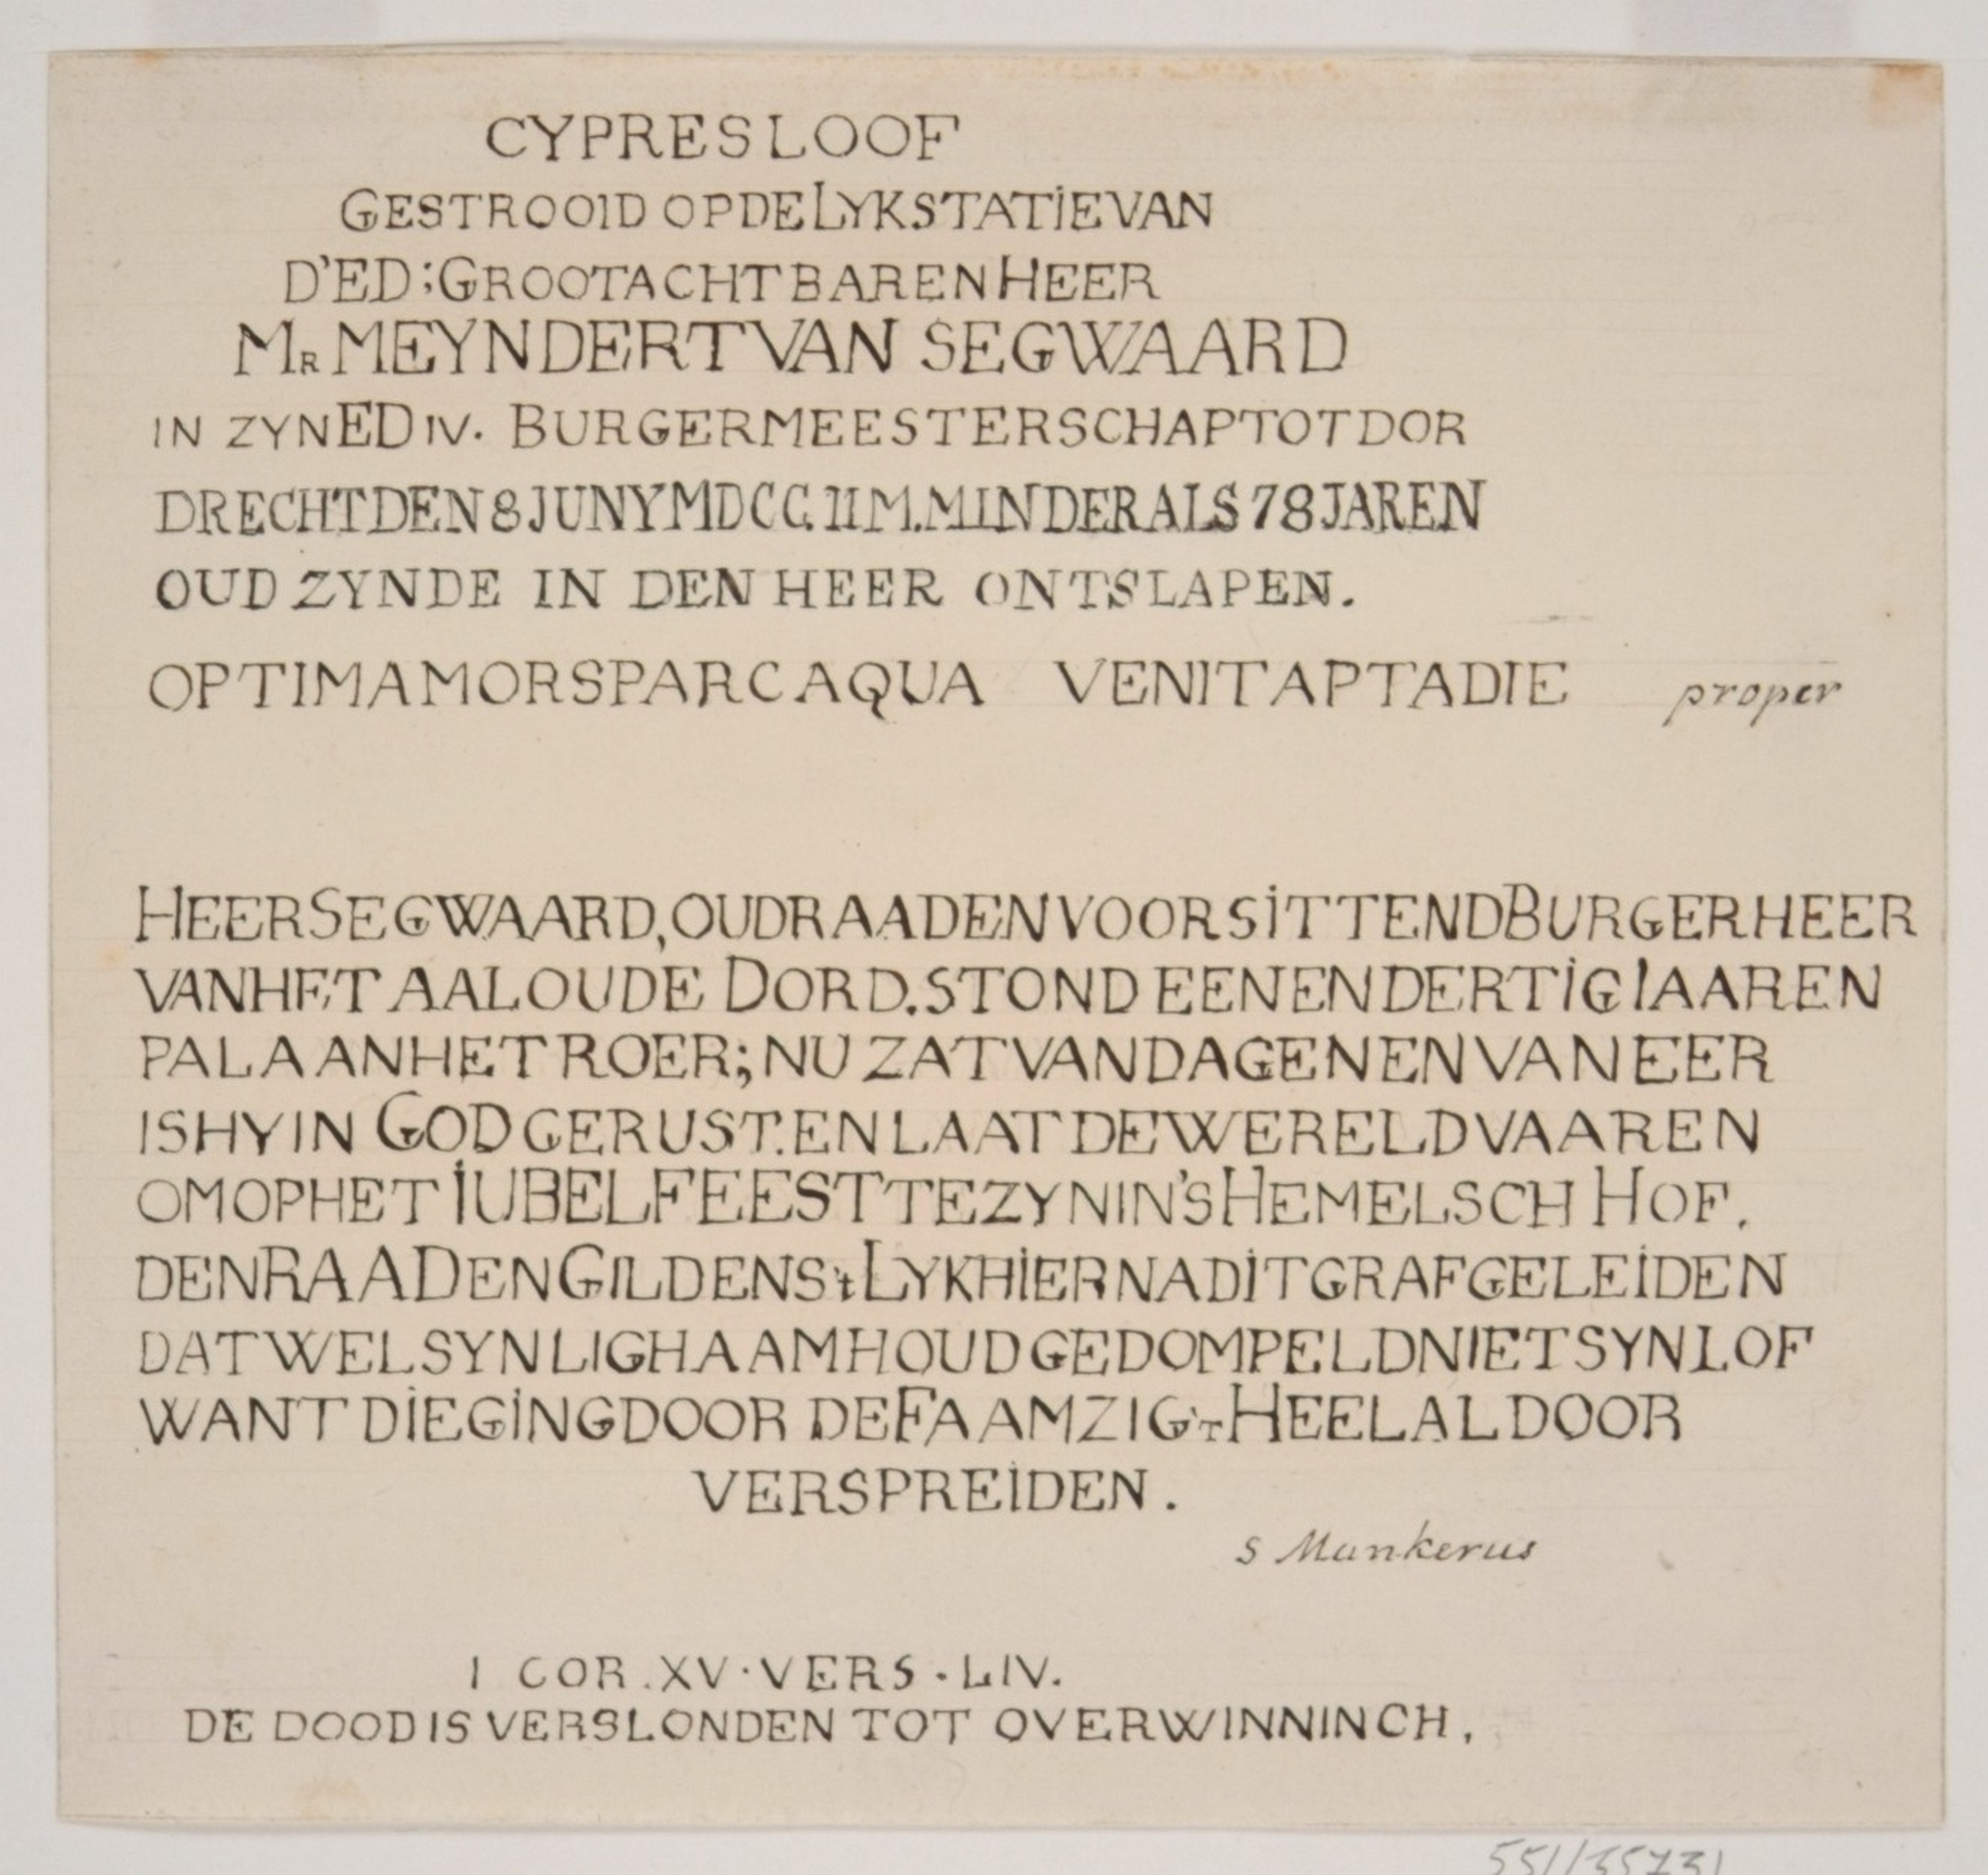 CYPRESLOOF
GESTROOID OP DE LYKSTATIE VAN
D'ED; GROOTACHTBAREN HEER
MR MEYNDERT VAN SEGWAARD
IN ZYN ED IV. BURGERMEESTERSCHAP TOT DOR
DRECHT DEN 8 JUNY MDCC. II M. MINDER ALS 78 JAREN
OUD ZYNDE IN DEN HEER ONTSLAPEN.
OPTIMA MORS PARCA QUA VENIT APTA DIE proper
HEER SEGWAARD, OUDRAAD EN VOORSITTEND BURGERHEER
VAN HET AALOUDE DORD. STOND EENENDERTIG IAAREN
PAL AAN HET ROER; NU ZAT VAN DAGEN EN VAN EER
IS HY IN GOD GERUST. EN LAAT DE WERELD VAAREN
OM OP HET IUBELFEEST TE ZYN IN 'S HEMELSCH HOF.
DEN RAAD EN GILDENS 't LYK HIER NA DIT GRAF GELEIDEN
DAT WEL SYN LIGHAAM HOUD GEDOMPELD NIET SYN LOF
WANT DIE GING DOOR DE FAAM ZIG 'T HEELAL DOOR
VERSPREIDEN.
S Munkerus
I COR. XV. VERS. LIV.
DE DOOD IS VERSLONDEN TOT OVERWINNINCH.
551/35731